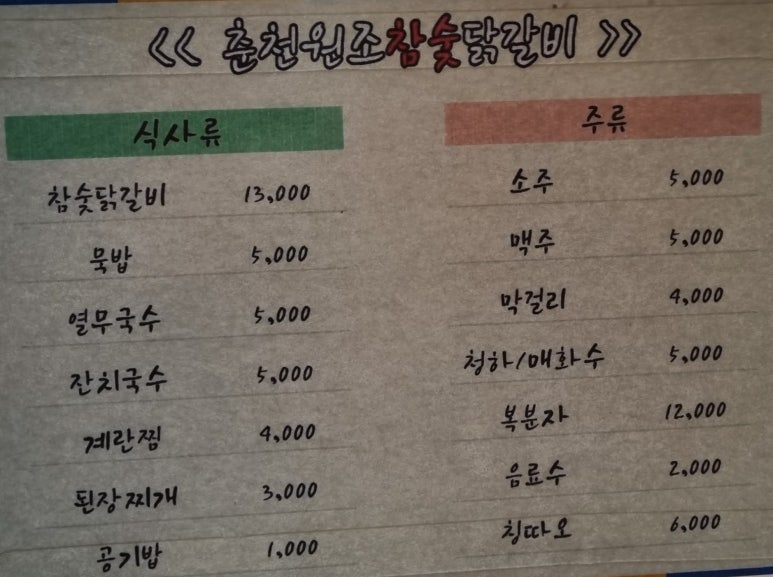 << 춘천원조참숯닭갈비 >>
식사류
참숯닭갈비 13,000
묵밥 5,000
열무국수 5,000
잔치국수 5,000
계란찜 4,000
된장찌개 3,000
공기밥 1,000
주류
소주 5,000
맥주 5,000
막걸리 4,000
청하/매화수 5,000
복분자 12,000
음료수 2,000
칭따오 6,000